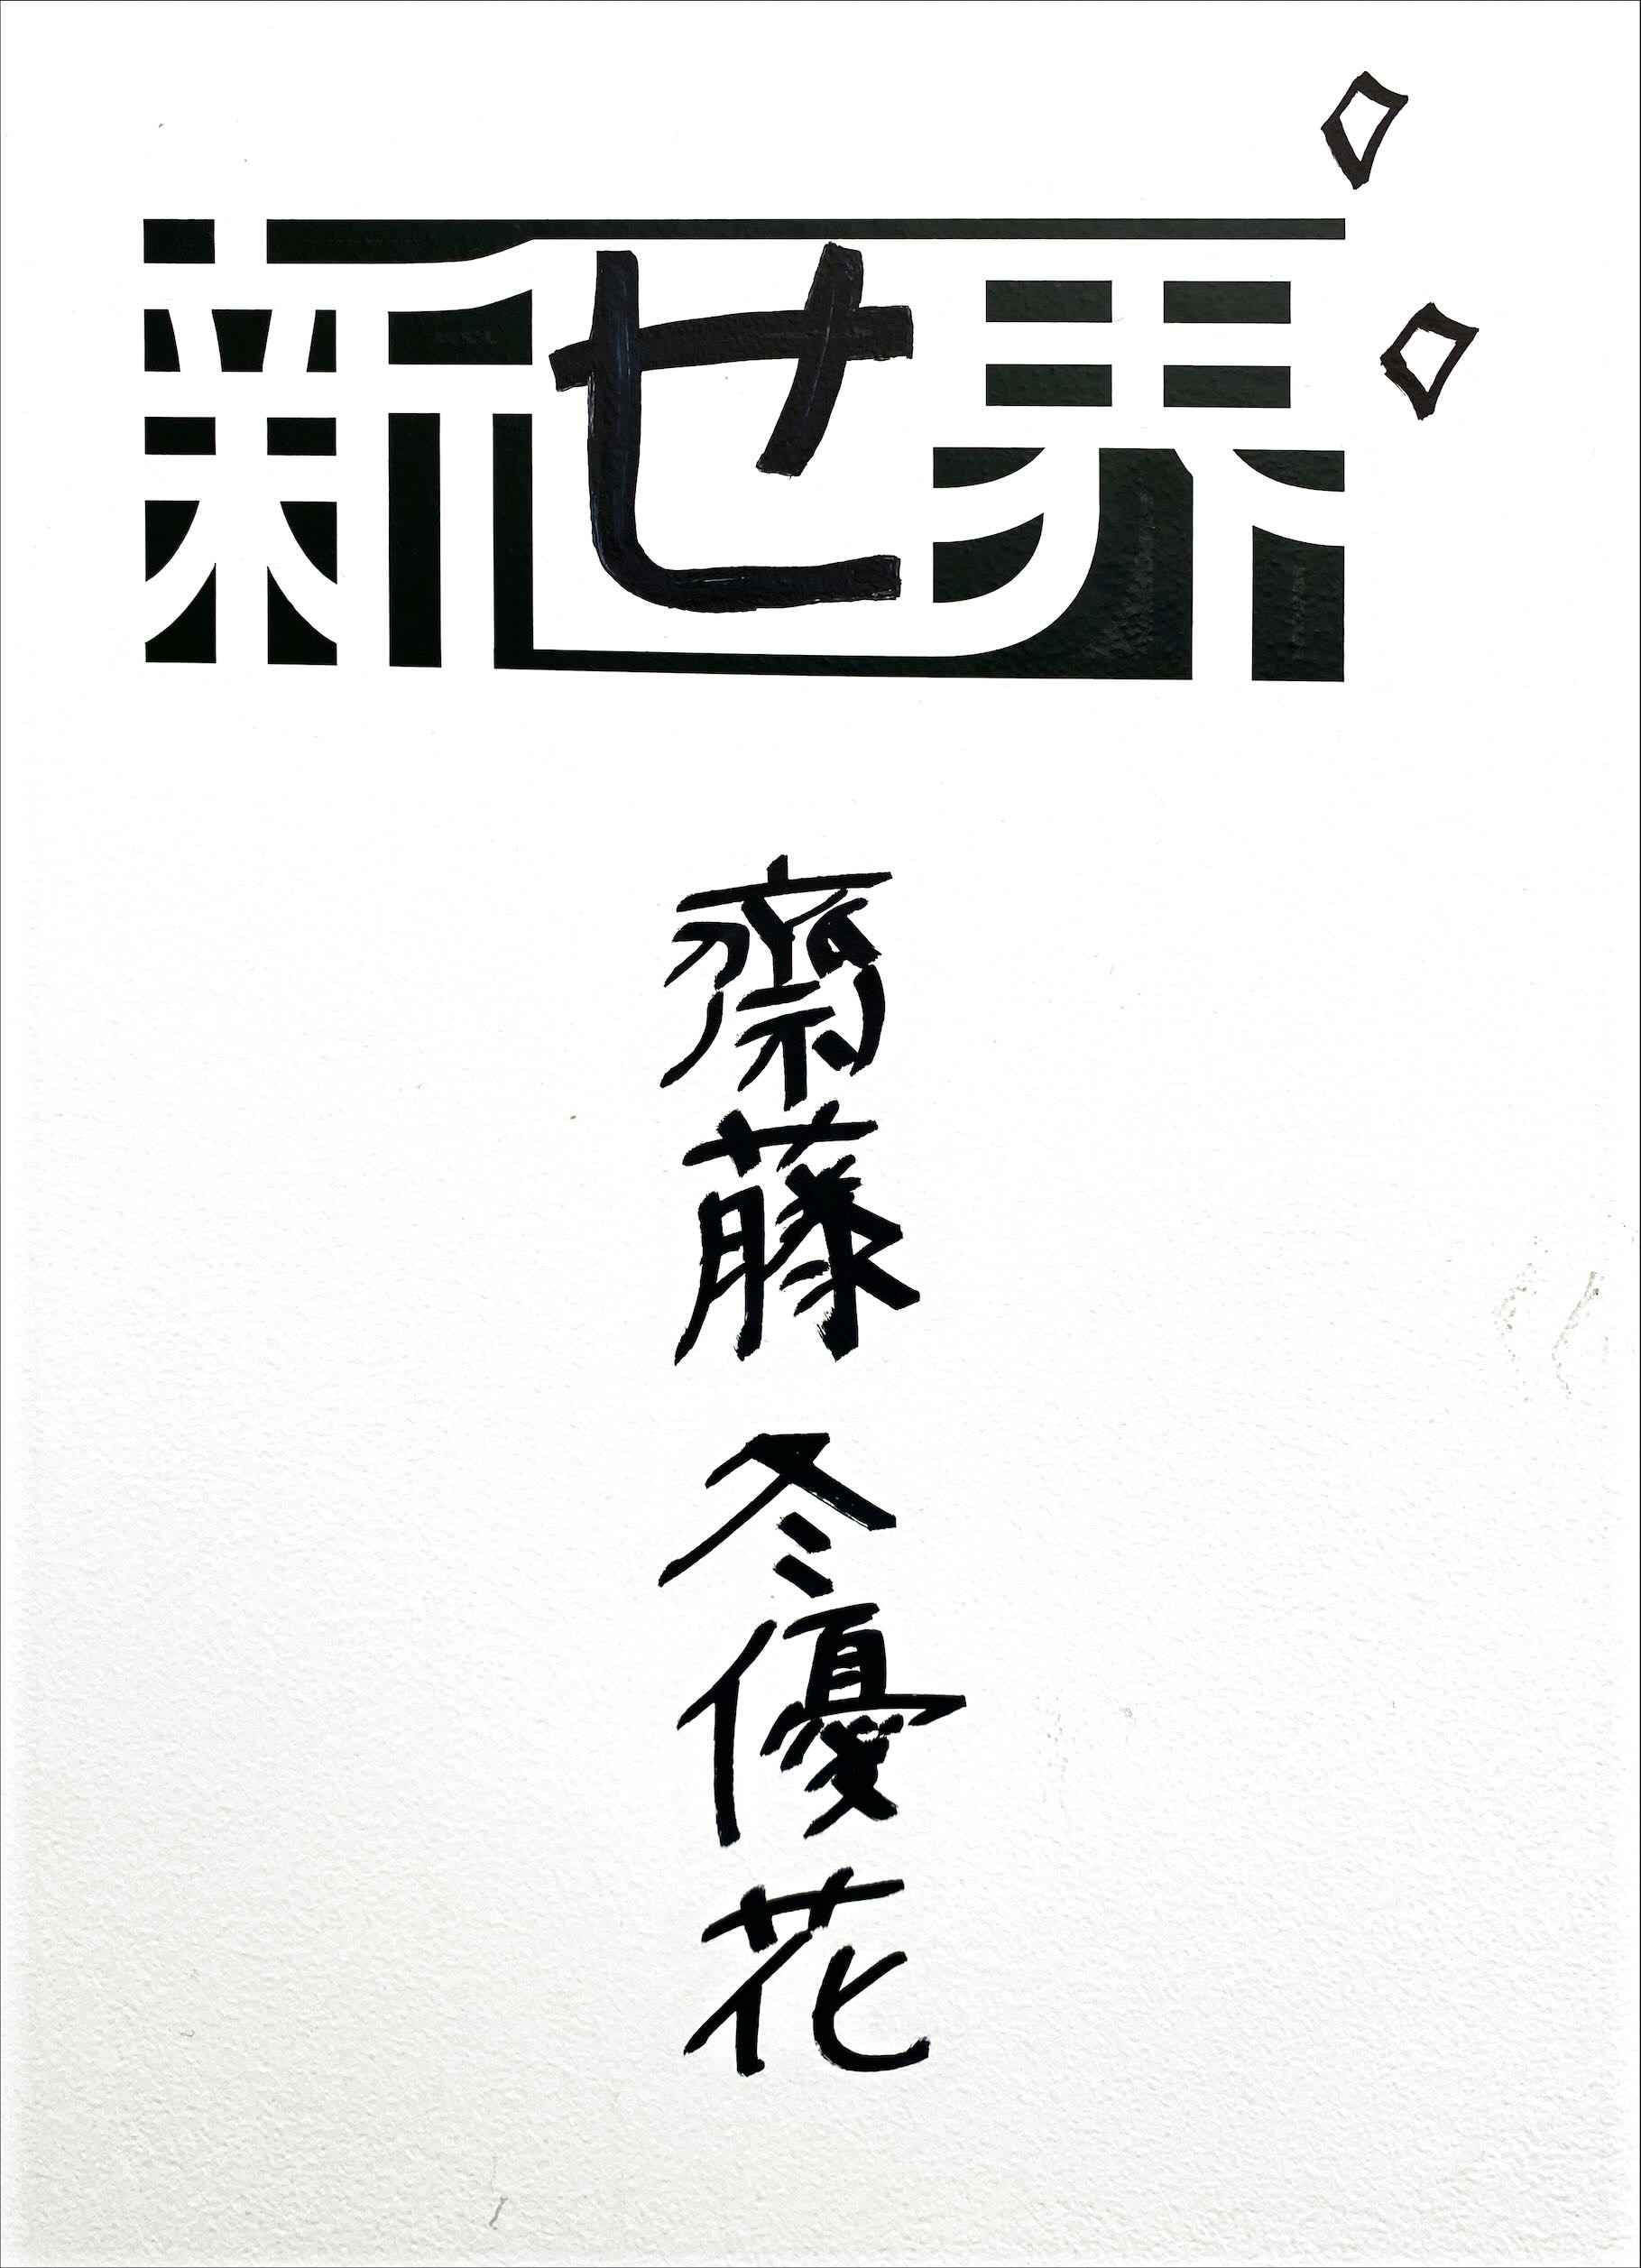 新せ界
齋藤 冬優花